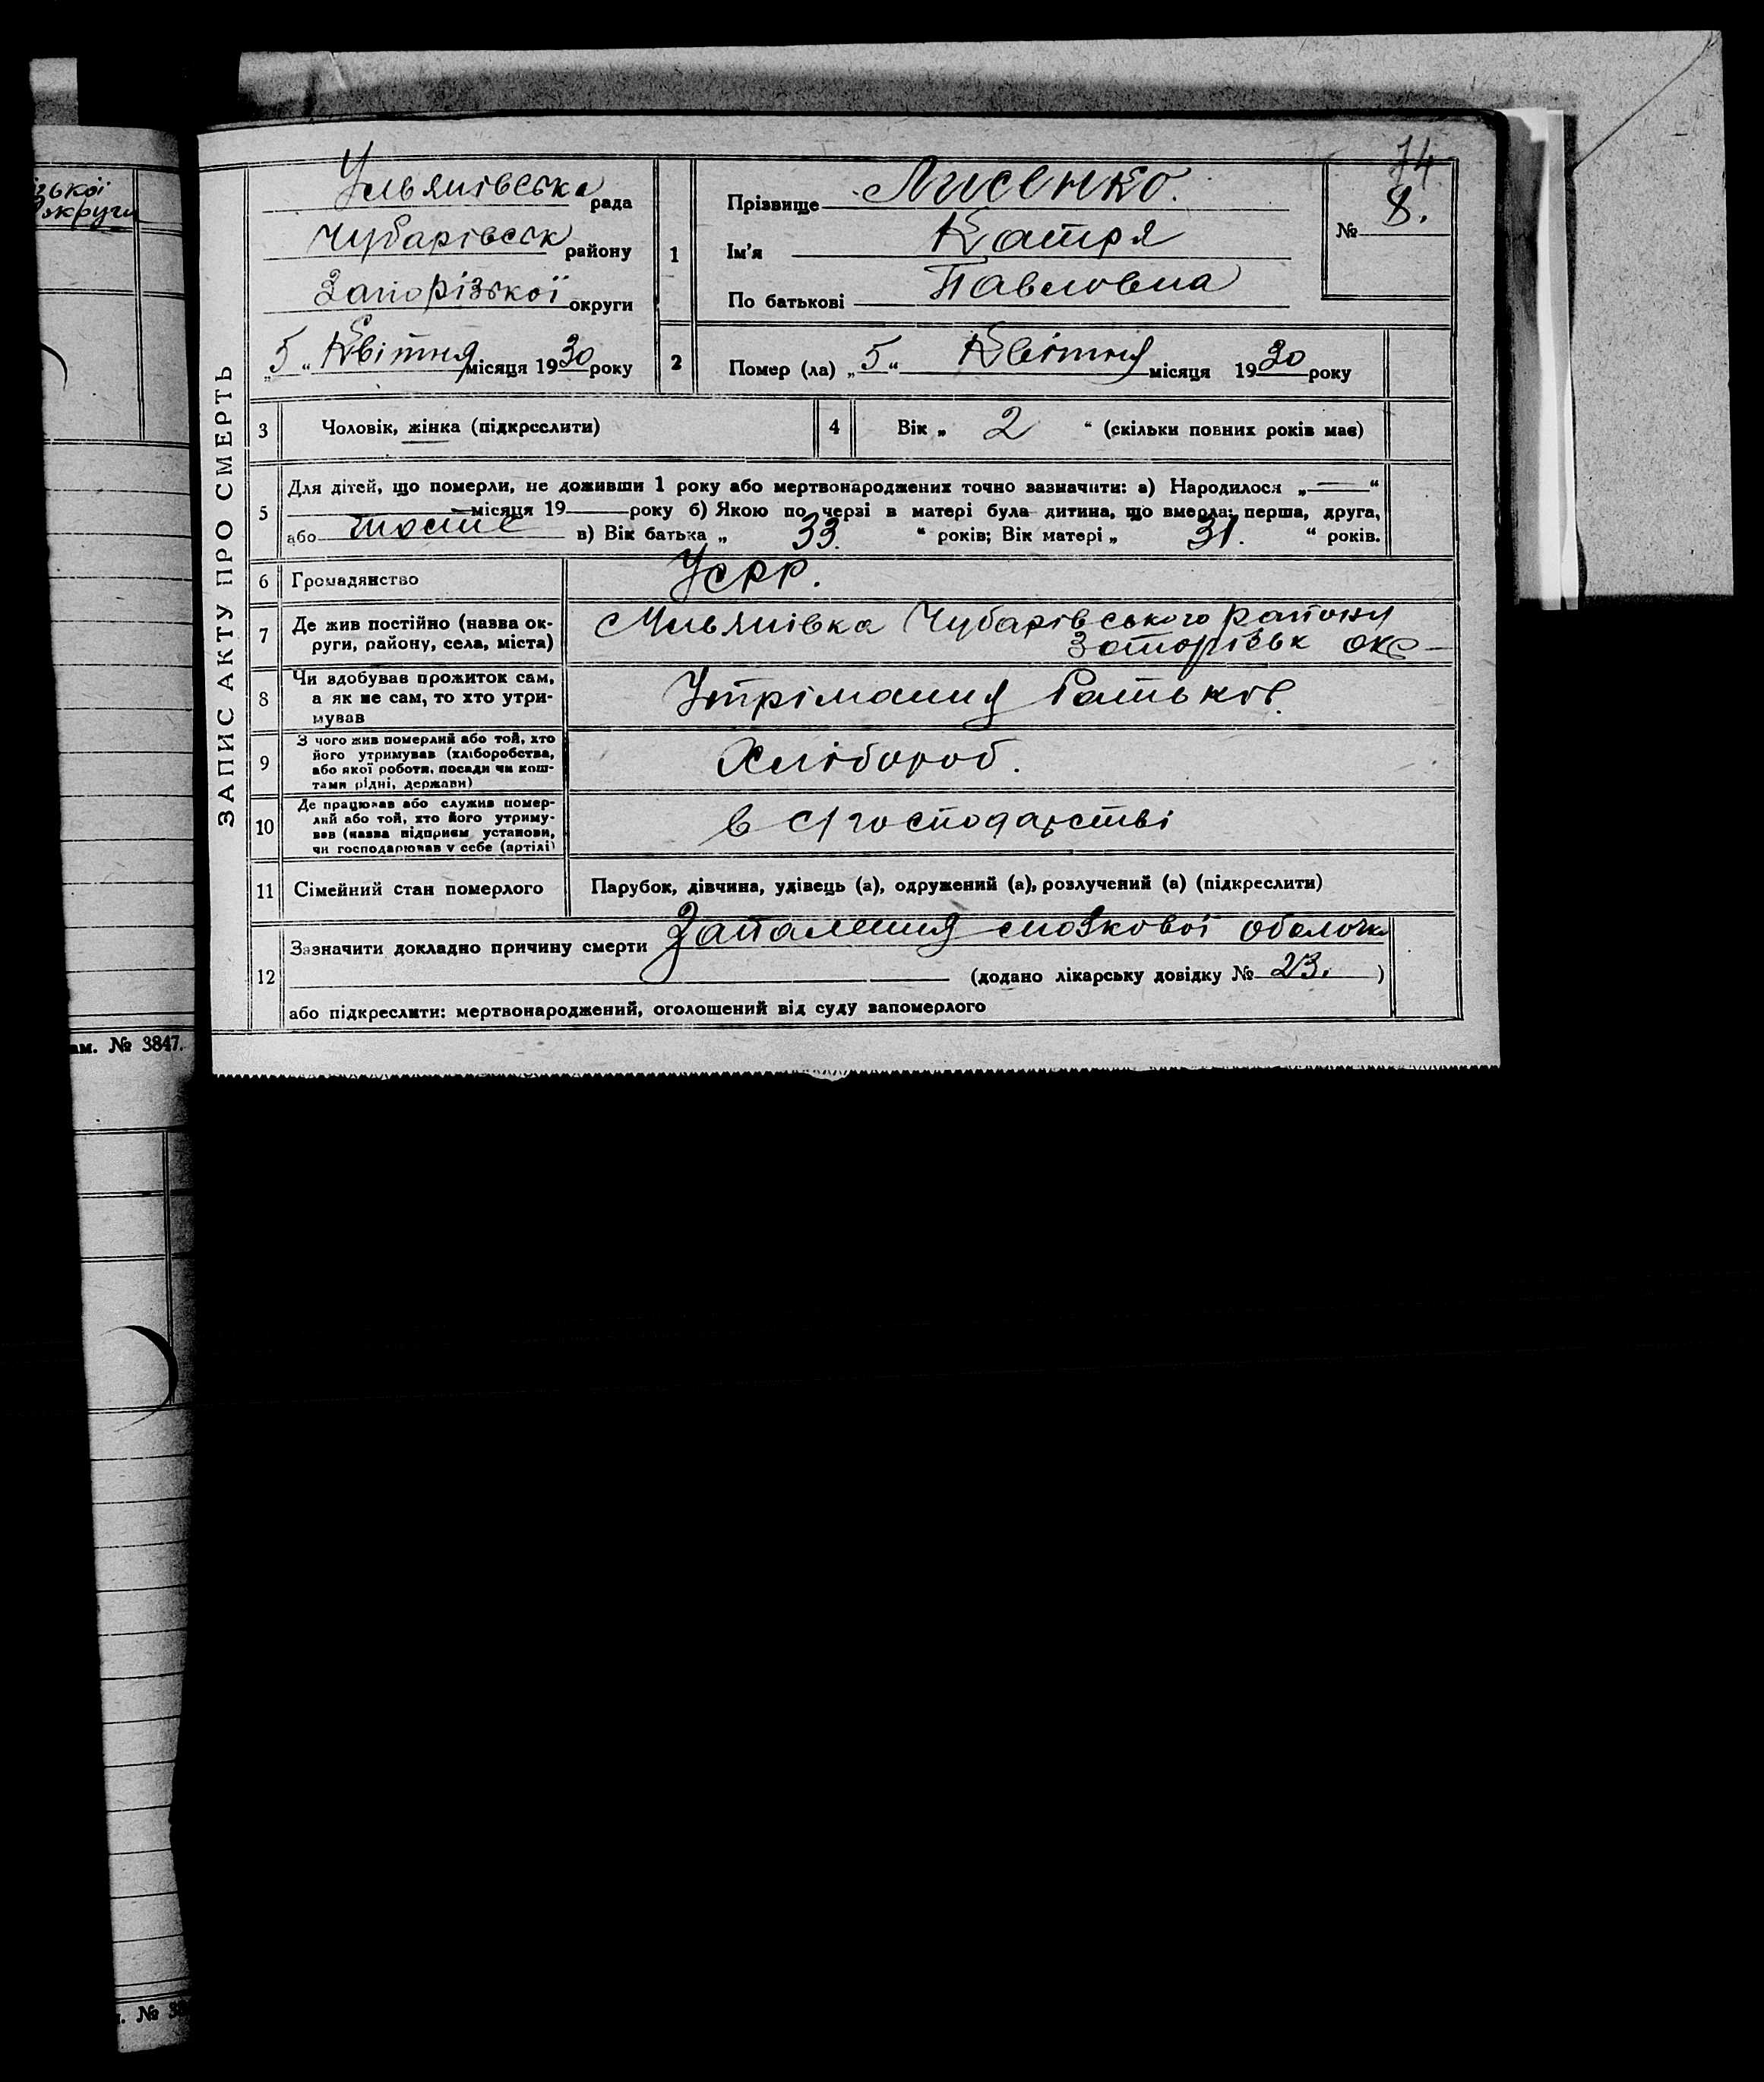 зької
округи
ам. № 3847.
. № 38
ЗАПИС АКТУ ПРО СМЕРТЬ
74
Ульянівська рада
Чубарівськ району
Запорізької округи
„5“ Квітня місяця 1930 року
1
Прізвище Лисенко.
Ім'я Катря
По батькові Павловна
№ 8.
2 Помер (ла) „5“ Квітня місяця 1930 року
3 Чоловік, жінка (підкреслити)
4 Вік „ 2 “ (скільки повних років має)
5 Для дітей, що померли, не доживши 1 року або мертвонароджених точно зазначити: а) Народилося „—“
місяця 19 року б) Якою по черзі в матері була дитина, що вмерла: перша, друга,
або шосте в) Вік батька „ 33. “ років; Вік матері „ 31. “ років.
6 Громадянство УСРР.
7 Де жив постійно (назва округи, району, села, міста)
Ульянівка Чубарівського району
Запорізьк окр
8 Чи здобував прожиток сам,
а як не сам, то хто утри-
мував
Утрімання батьків.
9 З чого жив померлий або той, хто
його утримував (хліборобства,
або якої роботи, посади чи кош-
тами рідні, держави)
Хлібороб.
10 Де працював або служив помер-
лий або той, хто його утриму-
вав (назва підприєм установи,
чи господарював у себе (артілі)
в с/господарстві
11 Сімейний стан померлого Парубок, дівчина, удівець (а), одружений (а), розлучений (а) (підкреслити)
12 Зазначити докладно причину смерти Запалення мозкової оболочки
(додано лікарську довідку № 23. )
або підкреслити: мертвонароджений, оголошений від суду запомерлого